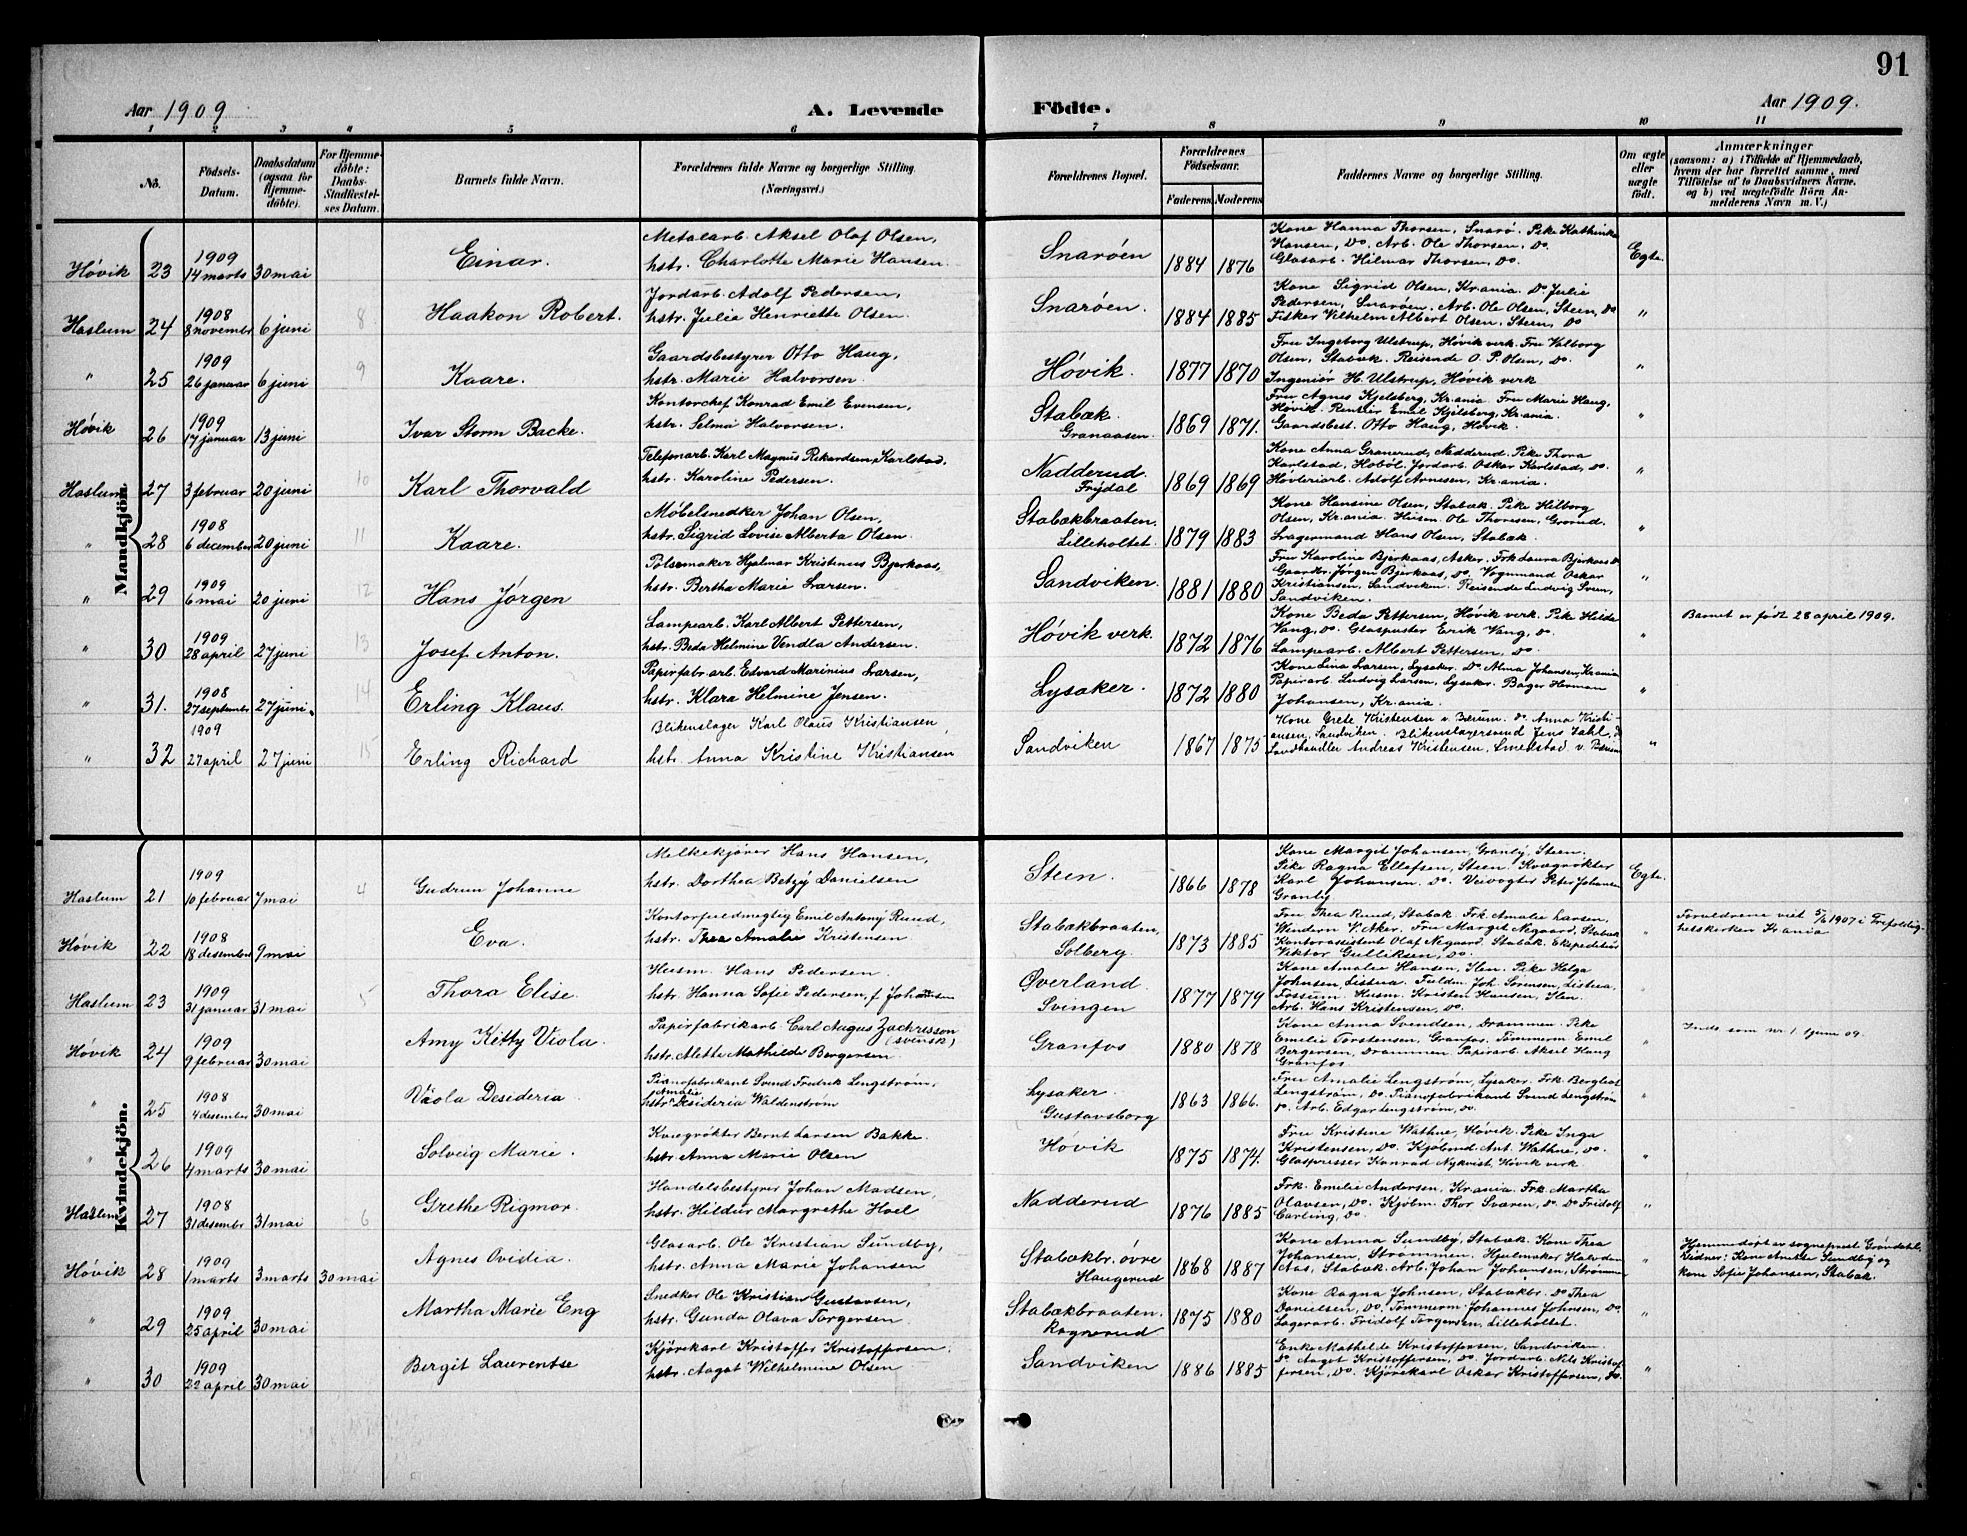 91
Aar 1909
A. Levende
Födte.
Aar 1909.
1 2 3 4 5 6 7 8 9 10 11
No.
Födsels-Datum.
Daabsdatum (ogsaa for Hjemmedöbte).
For Hjemmedöbte: Daabs-Stadfestelses Datum.
Barnets fulde Navn.
Forældrenes fulde Navne og borgerlige Stilling. (Næringsvei.)
Forældrenes Bopæl.
Forældrenes Födselsaar.
Faderens. Moderens.
Faddernes Navne og borgerlige Stilling.
Om ægte eller uægte födt.
Anmærkninger
(saasom: a) i Tilfælde af Hjemmedaab, hvem der har forrettet samme, med Tilföielse af to Daabsvidners Navne, og b) ved uægtefödte Börn Anmelderens Navn m. V.)
Mandkjön.
Høvik 23 1909 14 marts 30 mai Einar.
Metalarb. Aksel Olaf Olsen,
hstr. Charlotte Marie Hansen
Snarøen 1884 1876
Kone Hanna Thorsen, Snarø. Pike Kathinka
Hansen, Do. Arb. Ole Thorsen, Do.
Glasarb. Hilmar Thorsen, Do.
Egte.
Haslum 24 1908 8 novembr 6 juni 8 Haakon Robert.
Jordarb. Adolf Pedersen,
hstr. Julie Henriette Olsen.
Snarøen. 1884 1885
Kone Sigrid Olsen, Kr.ania. Do. Julie
Pedersen, Snarøen. Arb. Ole Olsen, Steen, Do
Fisker Vilhelm Albert Olsen, Steen, Do
"
" 25 1909 26 januar 6 juni 9 Kaare.
Gaardsbestyrer Otto Haug,
hstr. Marie Halvorsen.
Høvik. 1877 1870
Fru Ingeborg Ulstrup, Høvik verk. Fru Valborg
Olsen, Stabæk. Reisende O. P. Olsen, Do.
Ingeniør H. Ulstrup, Høvik verk
"
Høvik 26 1909 17 januar 13 juni Ivar Storm Backe.
Kontorchef Konrad Emil Evensen,
hstr. Selma Halvorsen.
Stabæk. Granaasen. 1869 1871.
Fru Agnes Kjelsberg, Kr.ania. Fru Marie Haug,
Høvik. Rentier Emil Kjelsberg, Kr.ania.
Gaardsbest. Otto Haug, Høvik.
"
Haslum 27 3 februar 20 juni 10 Karl Thorvald
Telefonarb. Karl Magnus Rikardsen, Karlstad,
hstr. Karoline Pedersen.
Nadderud. Frydal 1869 1869
Kone Anna Granerud, Nadderud. Pike Thora
Karlstad, Hobøl. Jordarb. Oskar Karlstad, Do.
Høvleriarb. Adolf Arnesen, Kr.ania.
"
" 28 1908 6 december 20 juni 11 Kaare.
Møbelsnedker Johan Olsen,
hstr. Sigrid Lovise Alberta Olsen.
Stabækbraaten. Lilleholtet. 1879 1883
Kone Hansine Olsen, Stabæk. Pike Hilborg
Olsen, Kr.ania. Husm. Ole Thoresen, Grorud.
Lagermand Hans Olsen, Stabæk.
"
" 29 1909 6 mai 20 juni 12 Hans Jørgen
Pølsemaker Hjalmar Kristinus Bjerkaas,
hstr. Bertha Marie Larsen.
Sandviken. 1881 1880
Fru Karoline Bjerkaas, Asker. Frk Laura Bjerkaas Do
Gaardbr. Jørgen Bjerkaas, Do. Vognmand Oskar
Kristiansen, Sandviken. Reisende Ludvig Svein,
Sandviken.
"
" 30 1909 28 april 27 juni 13 Josef Anton.
Lampearb. Karl Albert Pettersen,
hstr. Beda Helmine Vendla Andersen.
Høvik verk. 1872 1876
Kone Beda Pettersen, Høvik verk. Pike Hilda
Vang, Do. Glaspuster Erik Vang, Do.
Lampearb. Albert Pettersen, Do.
"
Barnet er født 28 april 1909.
" 31. 1908 27 septembr 27 juni. 14 Erling Klaus.
Papirfabr. arb. Edvard Marinius Larsen,
hstr. Klara Helmine Jensen.
Lysaker. 1872 1880
Kone Lina Larsen, Lysaker. Do. Alma Johansen, Kr.ania
Papirarb. Ludvig Larsen, Lysaker. Bager Herman
Johansen, Kr.ania.
"
" 32 1909 27 april 27 juni 15 Erling Richard
Blikenslager Karl Olaus Kristiansen
hstr. Anna Kristine Kristiansen
Sandviken 1867 1875
Kone Grete Kristensen v. Bærum. Do. Anna Kristi-
ansen, Sandviken. Blikenslagersvend Jens Dahl,
Landhandler Andreas Kristensen, Smedstad v. Bærum
"
Kvindekjön.
Haslum 21 1909 10 februar 7 mai 4 Gudrun Johanne
Melkekjører Hans Hansen,
hstr. Dorthea Betzy Danielsen
Steen. 1866 1878
Kone Margit Johansen, Granly, Steen.
Pike Ragna Ellefsen, Steen. Kvægrøkter
Karl Johansen. Do. Veivogter Peter Johansen
Granly
Egte.
Høvik 22 1908 18 desember 9 mai Eva.
Kontorfuldmegtig Emil Antony Ruud,
hstr. Thea Amalie Kristensen.
Stabækbraaten, Solberg 1873 1885
Fru Thea Ruud, Stabæk. Frk. Amalie Larsen,
Windern V. Aker. Fru Margit Negaard, Stabæk
Kontorassistent Olaf Negaard. Stabæk. Ekspeditør
Viktor Gulliksen, Do.
"
Forældrene viet 5/6 1907 i Trefoldig-
hetskirken Kr.ania
Haslum 23 1909 31 januar 31 mai 5 Thora Elise.
Husm. Hans Pedersen.
hstr. Hanna Sofie Pedersen, f. Johansen
Øverland Svingen 1877 1879
Kone Amalie Hansen, Ilen. Pike Helga
Johnsen, Listua. Fuldm. Joh. Sørensen, Listua,
Fossum. Husm. Kristen Hansen, Ilen.
Arb. Hans Kristensen, Do.
"
Høvik 24 1909 9 februar 30 mai Amy Kitty Viola.
Papirfabrikarb. Carl August Zachrisson (svensk)
hstr. Alette Mathilde Bergersen
Granfos 1880 1878
Kone Anna Svendsen, Drammen. Pike
Emilie Torstensen, Granfos. Tømmerm. Emil
Bergersen, Drammen. Papirarb. Aksel Haug
Granfos
"
Inds. som nr. 1 juni 09.
" 25 1908 4 desember 30 mai Viola Desideria
Pianofabrikant Svend Fredrik Lengstrøm,
hstr. Amalie Desideria Waldenstrøm
Lysaker. Gustavsborg 1863 1866.
Fru Amalie Lengstrøm, Lysaker. Frk. Bergliot
Lengstrøm, Do. Pianofabrikand Svend Lengstrøm
Do. Arb. Edgar Lengstrøm, Do.
"
" 26 1909 4 marts 30 mai Solveig Marie.
Kvægrøkter Bernt Larsen Bakke.
hstr. Anna Marie Olsen
Høvik 1875 1874.
Fru Kristine Wathne, Høvik. Pike Inga
Kristensen, Do. Kjøbmd. Ant. Wathne, Do.
Glaspresser Konrad Nykvist. Høvik verk.
"
Haslum 27 1908 31 desembr 31 mai 6 Grethe Rigmor.
Handelsbestyrer Johan Madsen,
hstr. Hildur Margrethe Hoel
Nadderud 1876 1885
Frk. Emilie Andersen, Kr.ania. Frk. Martha
Olavsen, Do. Kjøbm. Thor Svaren, Do. Do Fridolf
Carling, Do.
"
Høvik 28 1909 1 marts 3 marts 30 mai Agnes Ovidia.
Glasarb. Ole Kristian Sundby,
hstr. Anna Marie Johansen
Stabækbr. øvre Haugerud 1868 1887
Kone Anna Sundby, Stabæk. Kone Thea
Johansen, Strømmen. Hjulmaker Halvdan
Aas, Stabæk. Arb. Johan Johansen, Strømmen
"
Hjemmedøpt av sogneprest Grøndahl.
Vidner: Kone Amalie Sundby og
kone Sofie Johansen, Stabæk.
" 29 1909 25 april 30 mai Martha Marie Eng
Snedker Ole Kristian Gustavsen,
hstr. Gunda Olava Torgersen
Stabækbraaten. Ragnerud 1875 1880
Kone Ragna Johnsen, Stabækbr. Do Thea
Danielsen, Do. Tømmerm. Johannes Johnsen, Do.
Lagerarb. Fridolf Torgersen, Lilleholtet.
"
" 30 1909 22 april 30 mai Bergit Laurentse
Kjørekarl Kristoffer Kristoffersen,
hstr. Aagot Wilhelmine Olsen
Sandviken 1886 1885
Enke Mathilde Kristoffersen, Sandviken.
Do. Aagot Kristoffersen, Do. Jordarb. Nils Kristof-
fersen, Do. Kjørekarl Oskar Kristoffersen, Do.
"